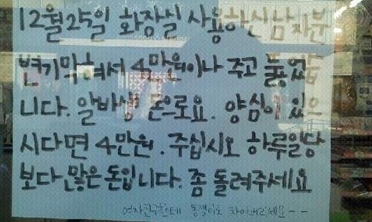 12월25일 화장실 사용하신남자분
변기막혀서 4만원이나 주고 뚫었습
니다. 알바생 돈으로요. 양심이 있으
시다면 4만원. 주십시오 하루일당
보다 많은 돈입니다. 좀 돌려주세요
여자친구한테